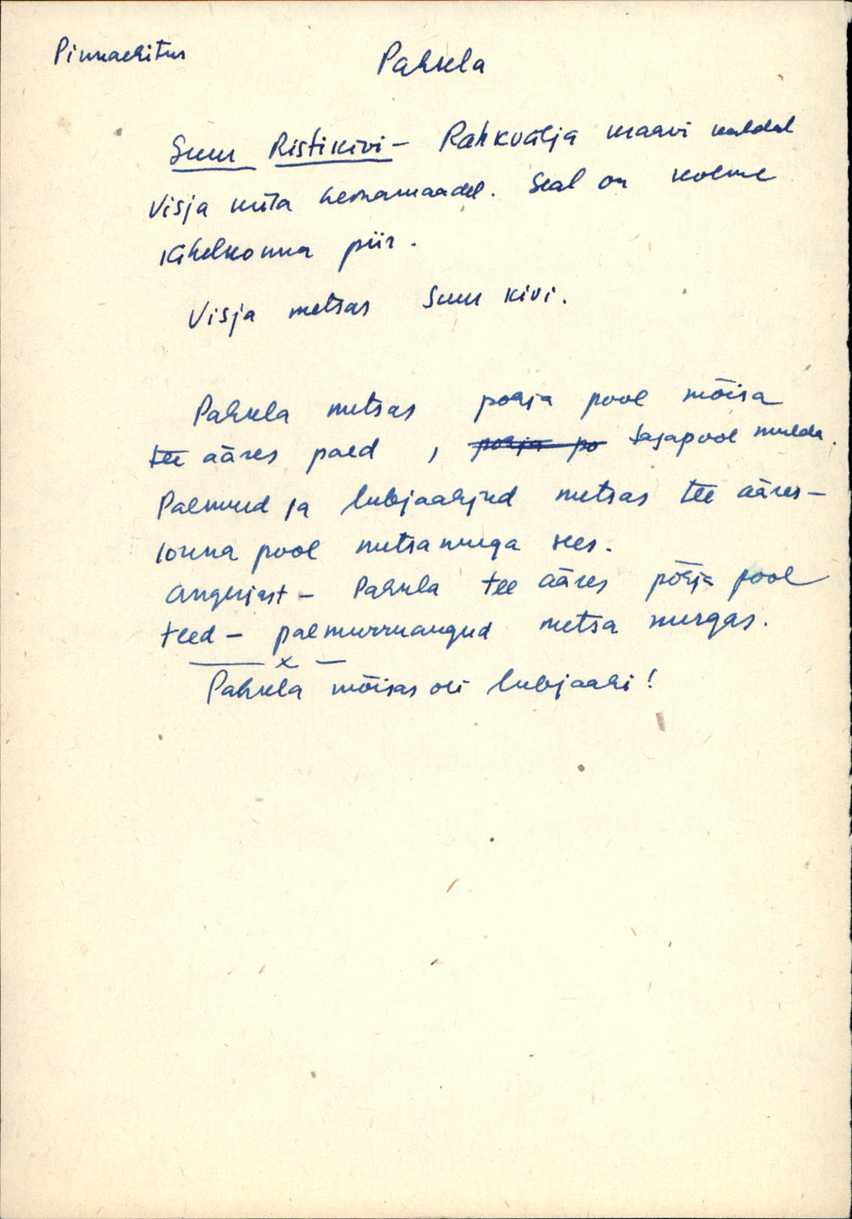 Pinnaehitus
Pahkla
Suur Ristikivi - Rahkvälja kraavi kaldal
Visja küla heinamaadel. Seal on kolme
kihelkonna piir.
Visja metsas Suur kivi.
Pahkla metsas põhja pool mõisa
tee ääres paed, põhja po tagapool mulda.
Paemurd ja lubjaahjud metsas tee ääres -
lõuna pool metsa nurga sees.
Angerjast - Pahkla tee ääres põhja pool
teed - paemurruaugud metsa nurgas.
— x —
Pahkla mõisas oli lubjaahi!